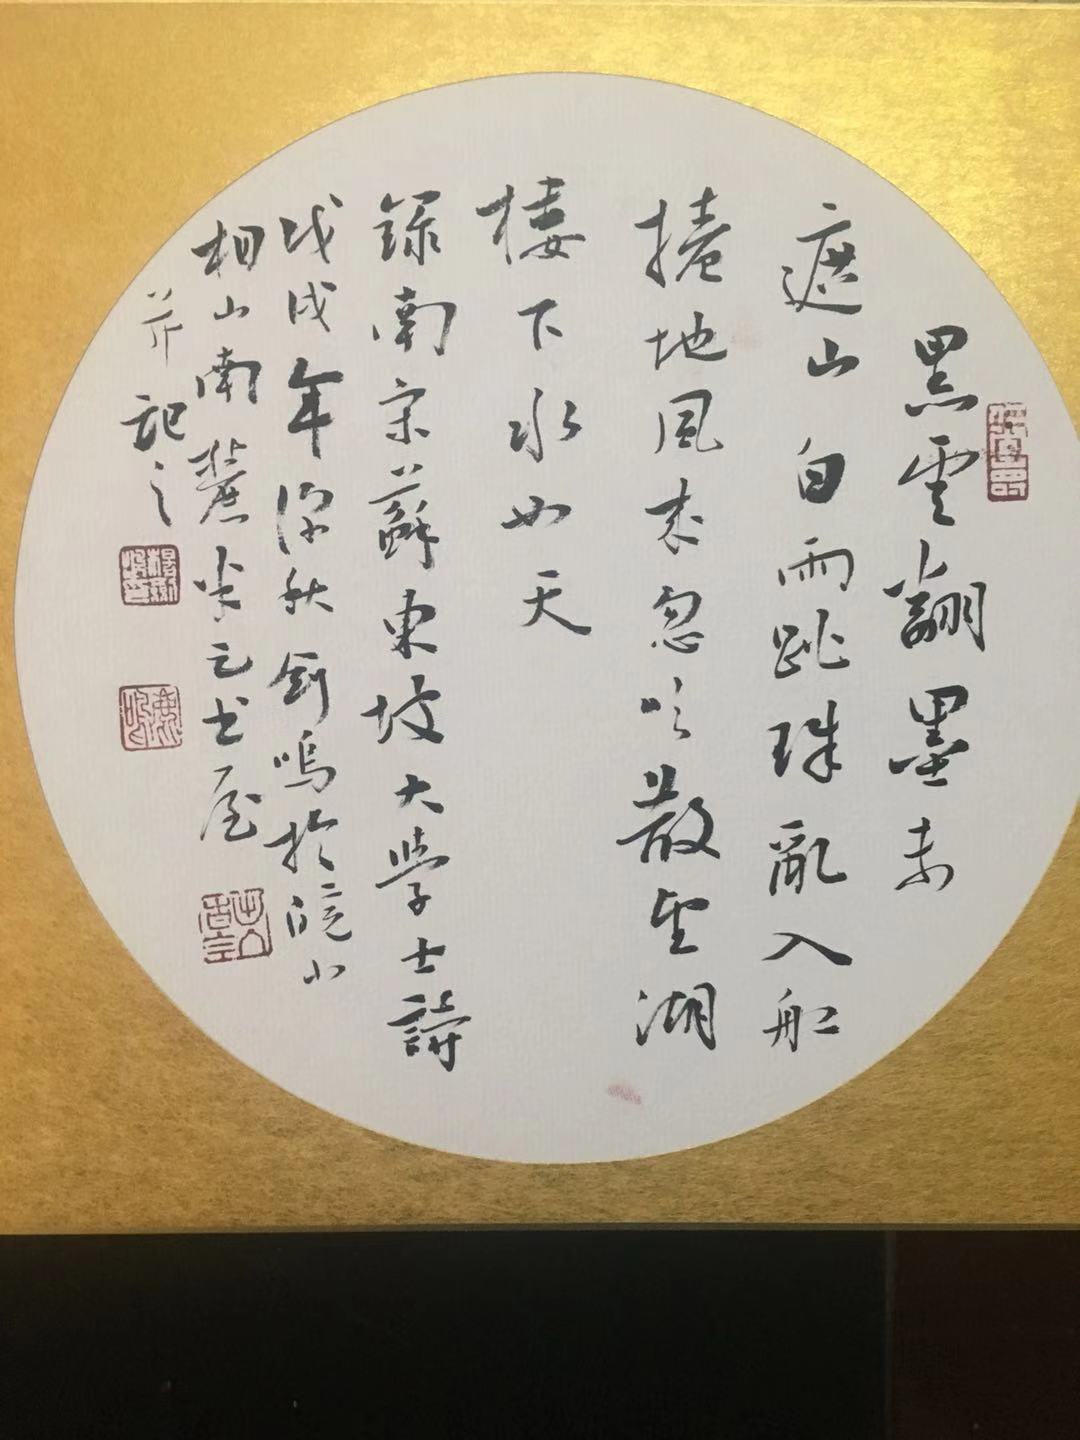 黑雲翻墨未
遮山白雨跳珠亂入船
捲地風來忽吹散望湖
樓下水如天
錄南宋蘇東坡大學士詩
戊戌年深秋劍鳴於皖北
相山南麓半之书屋
并記之